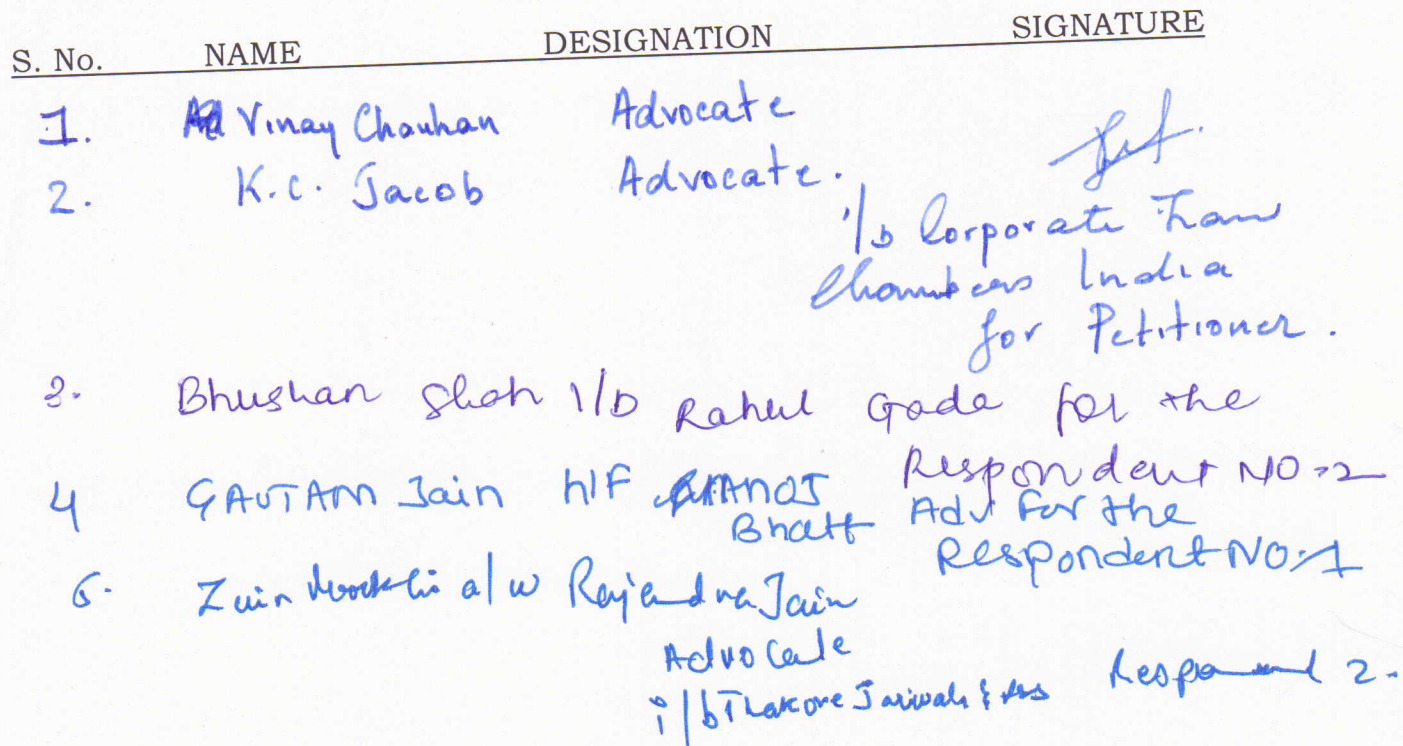 S. No. NAME DESIGNATION SIGNATURE
1. Vinay Chauhan Advocate
2. K.C. Jacob Advocate.
i/b Corporate Law
Chambers India
for Petitioner.
3. Bhushan Shah i/b Rahul Gada for the
Respondent NO.2
4 GAUTAM Jain h/F MANOJ
Bhatt Adv for the
Respondent NO.1
5. Zain a/w Rajendra Jain
Advocate
i/b Thakore Jariwala & Ass Respo 2.